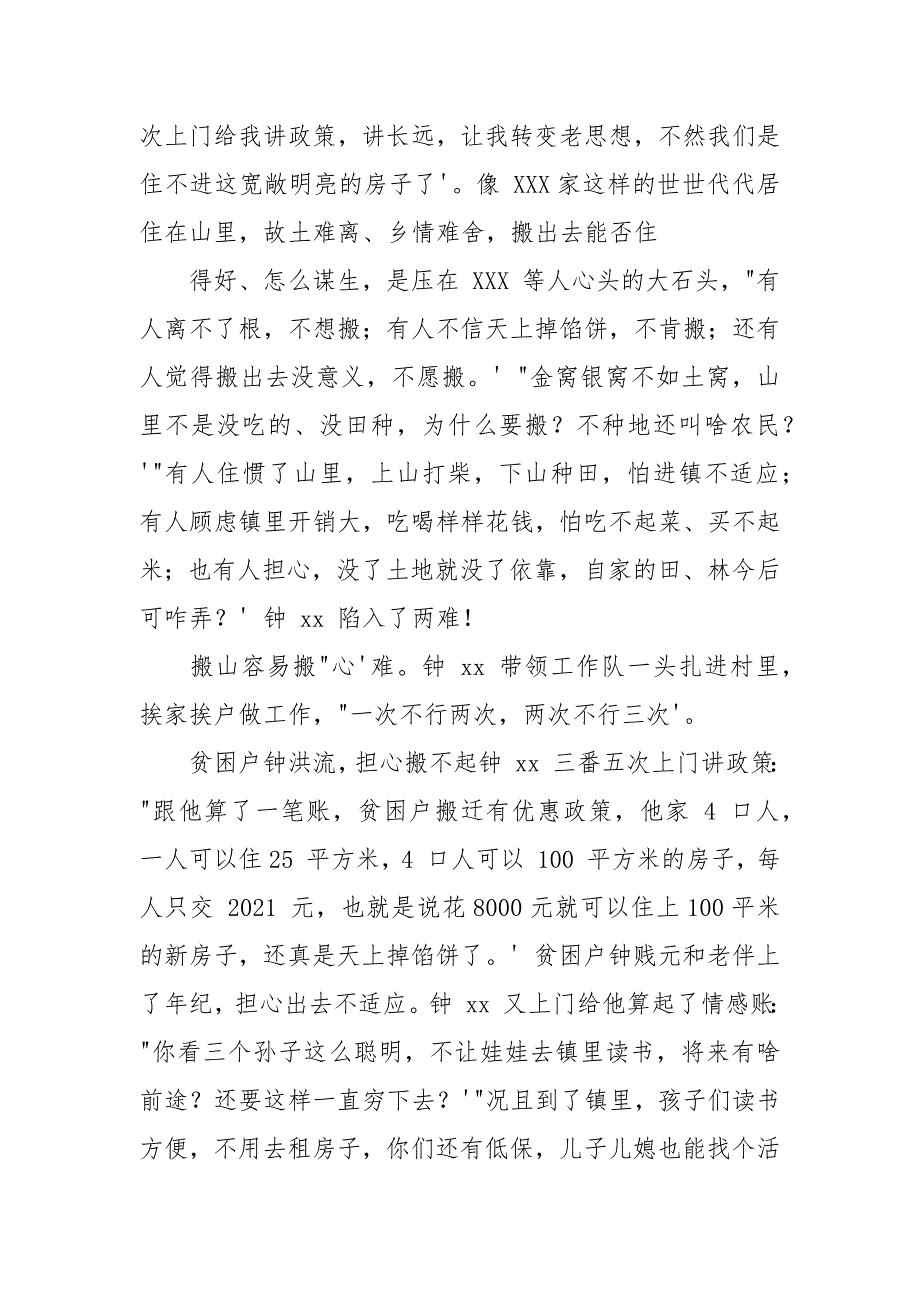 次上门给我讲政策，讲长远，让我转变老思想，不然我们是
住不进这宽敞明亮的房子了'。像 XXX家这样的世世代代居
住在山里，故土难离、乡情难舍，搬出去能否住
得好、怎么谋生，是压在 XXX 等人心头的大石头，"有
人离不了根，不想搬；有人不信天上掉馅饼，不肯搬；还有
人觉得搬出去没意义，不愿搬。' "金窝银窝不如土窝，山
里不是没吃的、没田种，为什么要搬？不种地还叫啥农民？
'"有人住惯了山里，上山打柴，下山种田，怕进镇不适应；
有人顾虑镇里开销大，吃喝样样花钱，怕吃不起菜、买不起
米；也有人担心，没了土地就没了依靠，自家的田、林今后
可咋弄？' 钟 xx 陷入了两难！
搬山容易搬"心'难。钟 xx 带领工作队一头扎进村里，
挨家挨户做工作，"一次不行两次，两次不行三次'。
贫困户钟洪流，担心搬不起钟 xx 三番五次上门讲政策：
"跟他算了一笔账，贫困户搬迁有优惠政策，他家 4 口人，
一人可以住25 平方米，4 口人可以 100 平方米的房子，每
人只交 2021 元，也就是说花8000元就可以住上100平米
的新房子，还真是天上掉馅饼了。' 贫困户钟贱元和老伴上
了年纪，担心出去不适应。钟 xx 又上门给他算起了情感账：
"你看三个孙子这么聪明，不让娃娃去镇里读书，将来有啥
前途？还要这样一直穷下去？'"况且到了镇里，孩子们读书
方便，不用去租房子，你们还有低保，儿子儿媳也能找个活